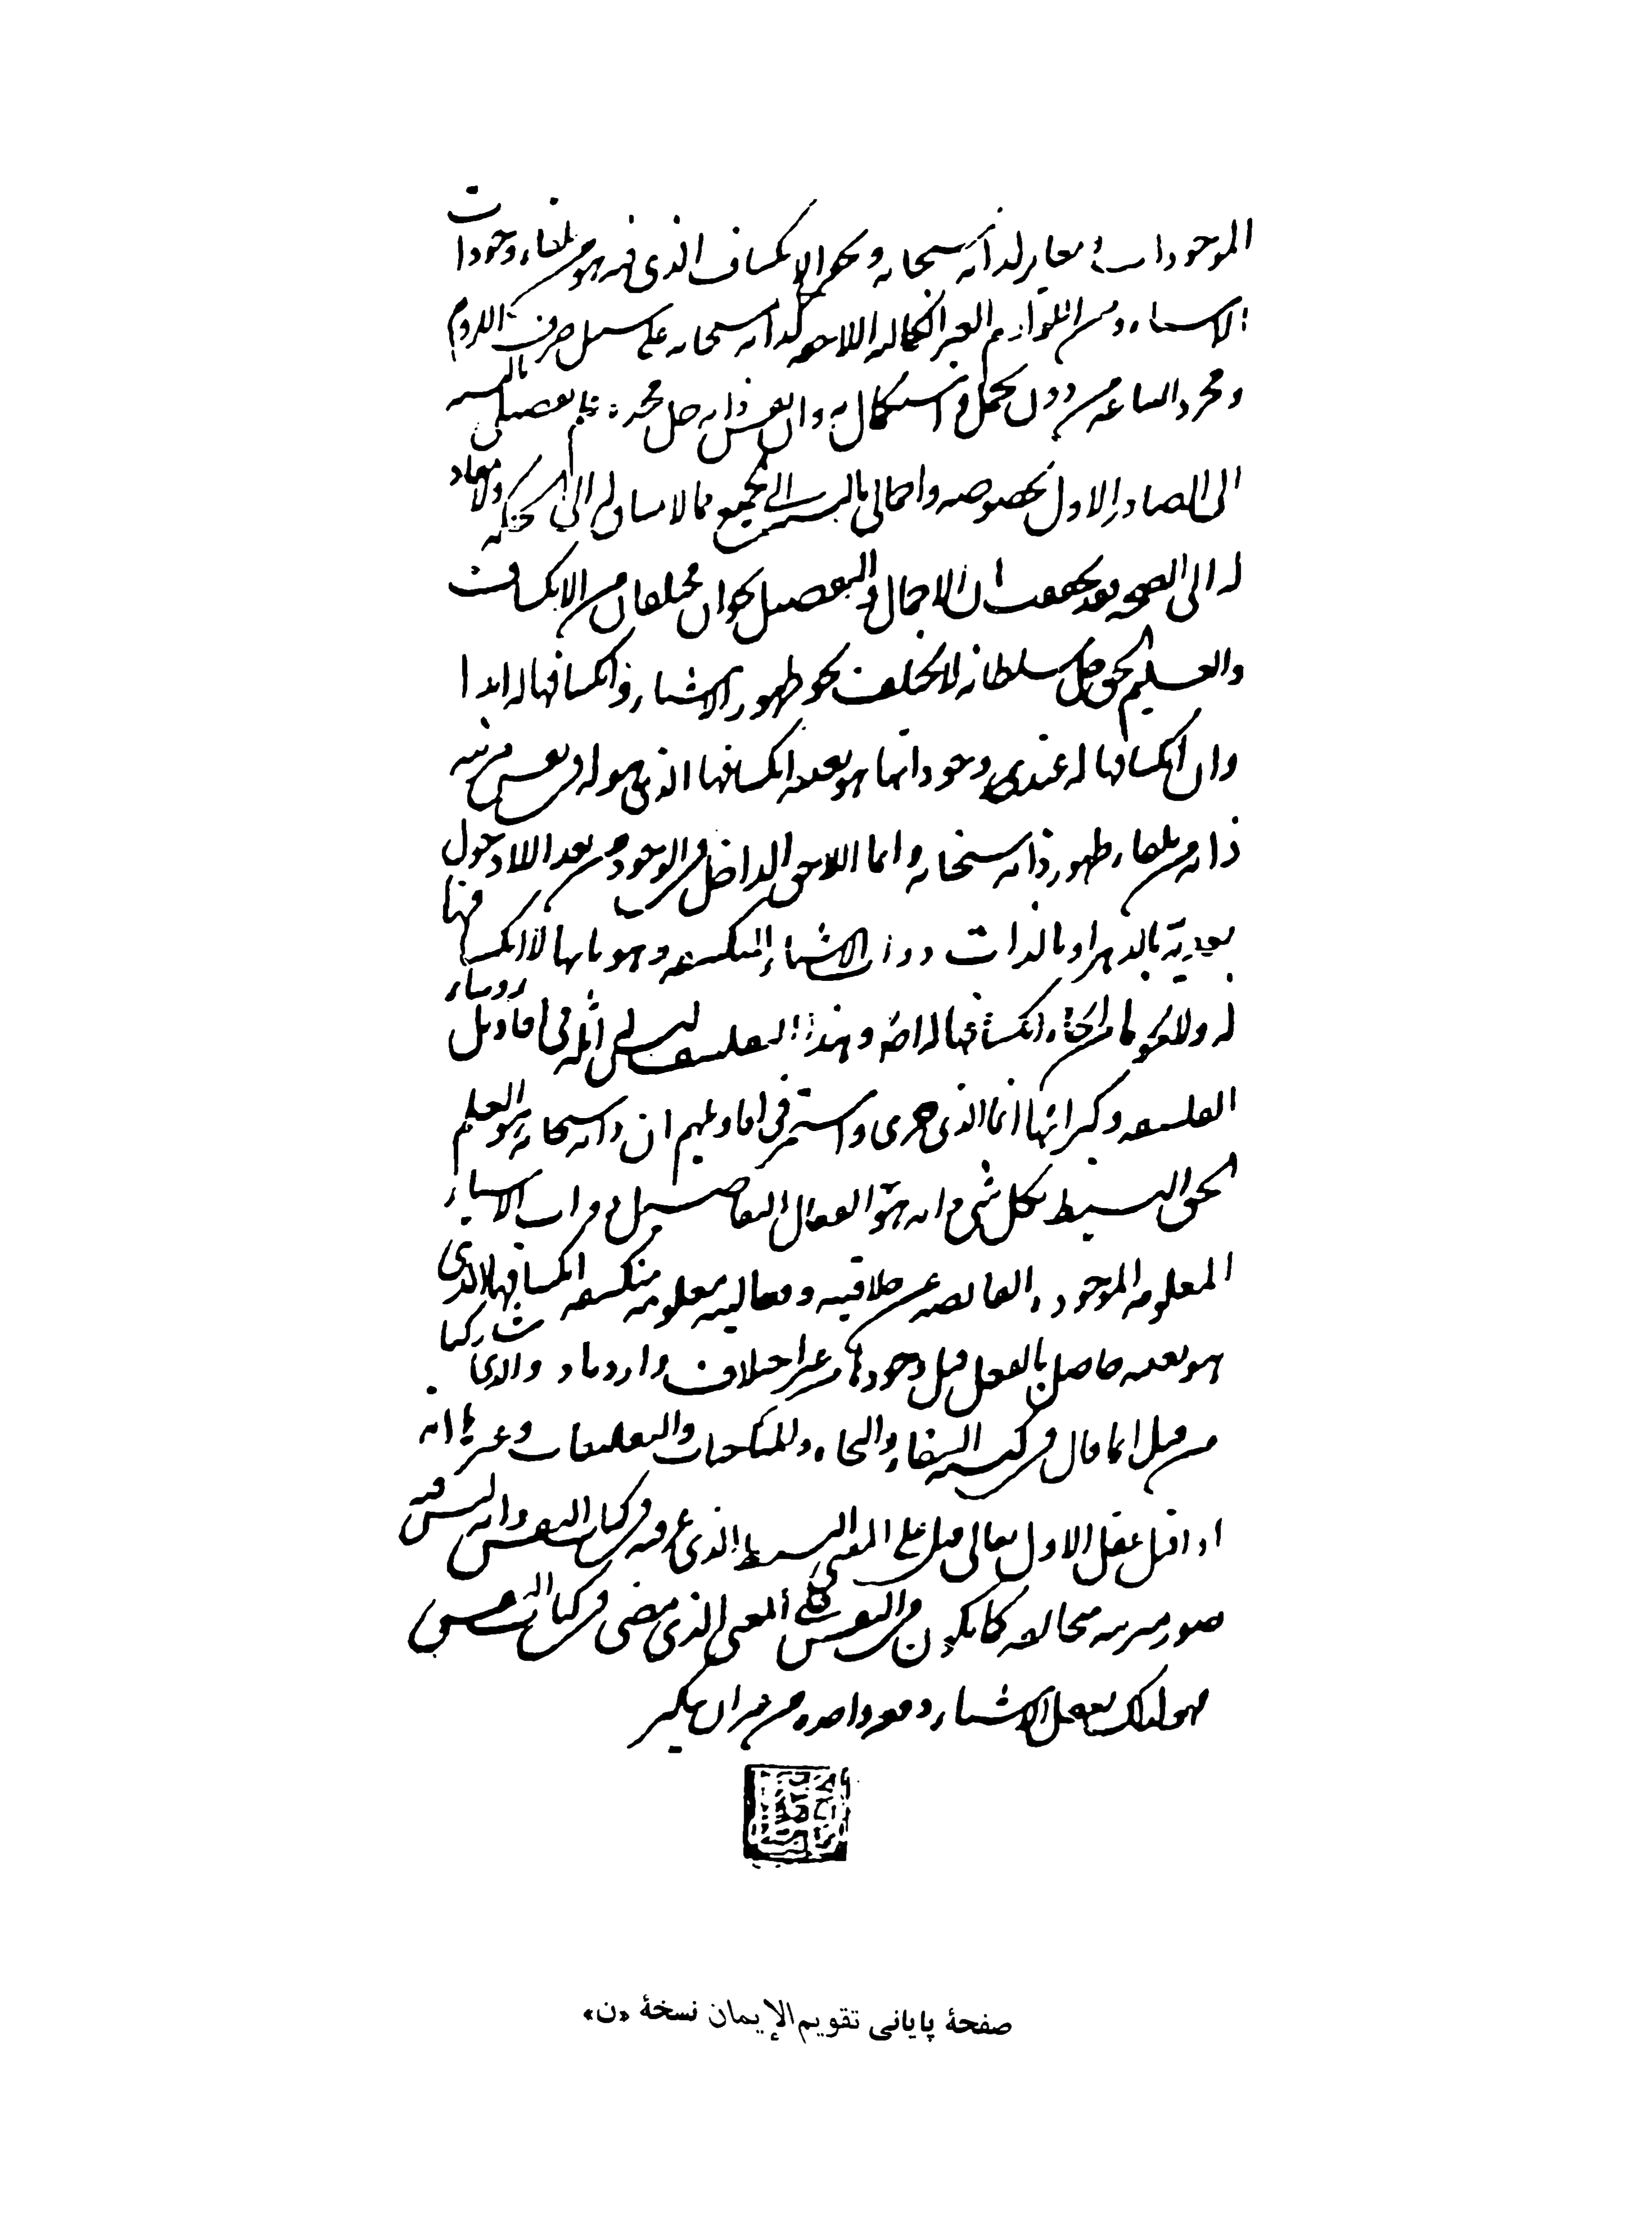 الموجودات مغاير لذاته سبحانه ونحو الانكشاف الذي فيه هو من تلقاء وجودات
الاشياء ومن اللوازم الغير الكمالية اللاحقة لذاته سبحانه على سبيل صرف اللزوم
ومجرد التباعة من دون تجمل واستكمال به وان نفس ذاته جل مجده علم تفصيلي بالنسبة
الى الصادر الاول بخصوصه واجمالي بالنسبة الى الجميع مما لا مساق له الى الحكمة ولا معاد
له الى الصحة فقد تحققت ان الاجمال والتفصيل نحوان مختلفان من الانكشاف
والعليم الحق جل سلطانه لا يختلف نحو ظهور الاشياء وانكشافها له ابدا
وان انكشافها له عند وجوداتها هو بعينه انكشافها الذي هو له في نفس مرتبة
ذاته من تلقاء ظهور ذاته سبحانه وانما اللاحق الداخل في الوجود من بعد اللادخول
بعدية بالدهر او بالذات ذوات الاشياء المنكشفة وهوياتها لا انكشافها
له ولا نحو ما من انحاء انكشافها له اصلا وهذه الفلسفة ليس في اقاويل رؤساء
الفلسفة وكبرائها انما الذي جرى واستمر في اقاويلهم ان ذاته سبحانه هو العلم
الحق البسيط بكل شيء وانه هو الفعال للتفاصيل وذوات الاشياء
المعلومة الموجودة الفائضة عن خلاقيته وفعاليته معلومة منكشفة انكشافها الذي
هو بعينه حاصل بالفعل قبل وجودها من غير اختلاف وازدياد والذي شاركنا
من قبل انما قال في كتبه الشفاء والنجاة والمباحثات والتعليقات وغيرها انه
اذا قيل عقل الاول تعالى قيل على المعنى البسيط الذي عرفته في كتاب النفس وانه ليس فيه
صور مترتبة متخالفة كما يكون في النفس على المعنى الذي مضى في كتاب النفس
فهو لذلك يعقل الاشياء دفعة واحدة من غير ان يتكثر
صفحهٔ پایانی تقویم الإیمان نسخهٔ «ن»